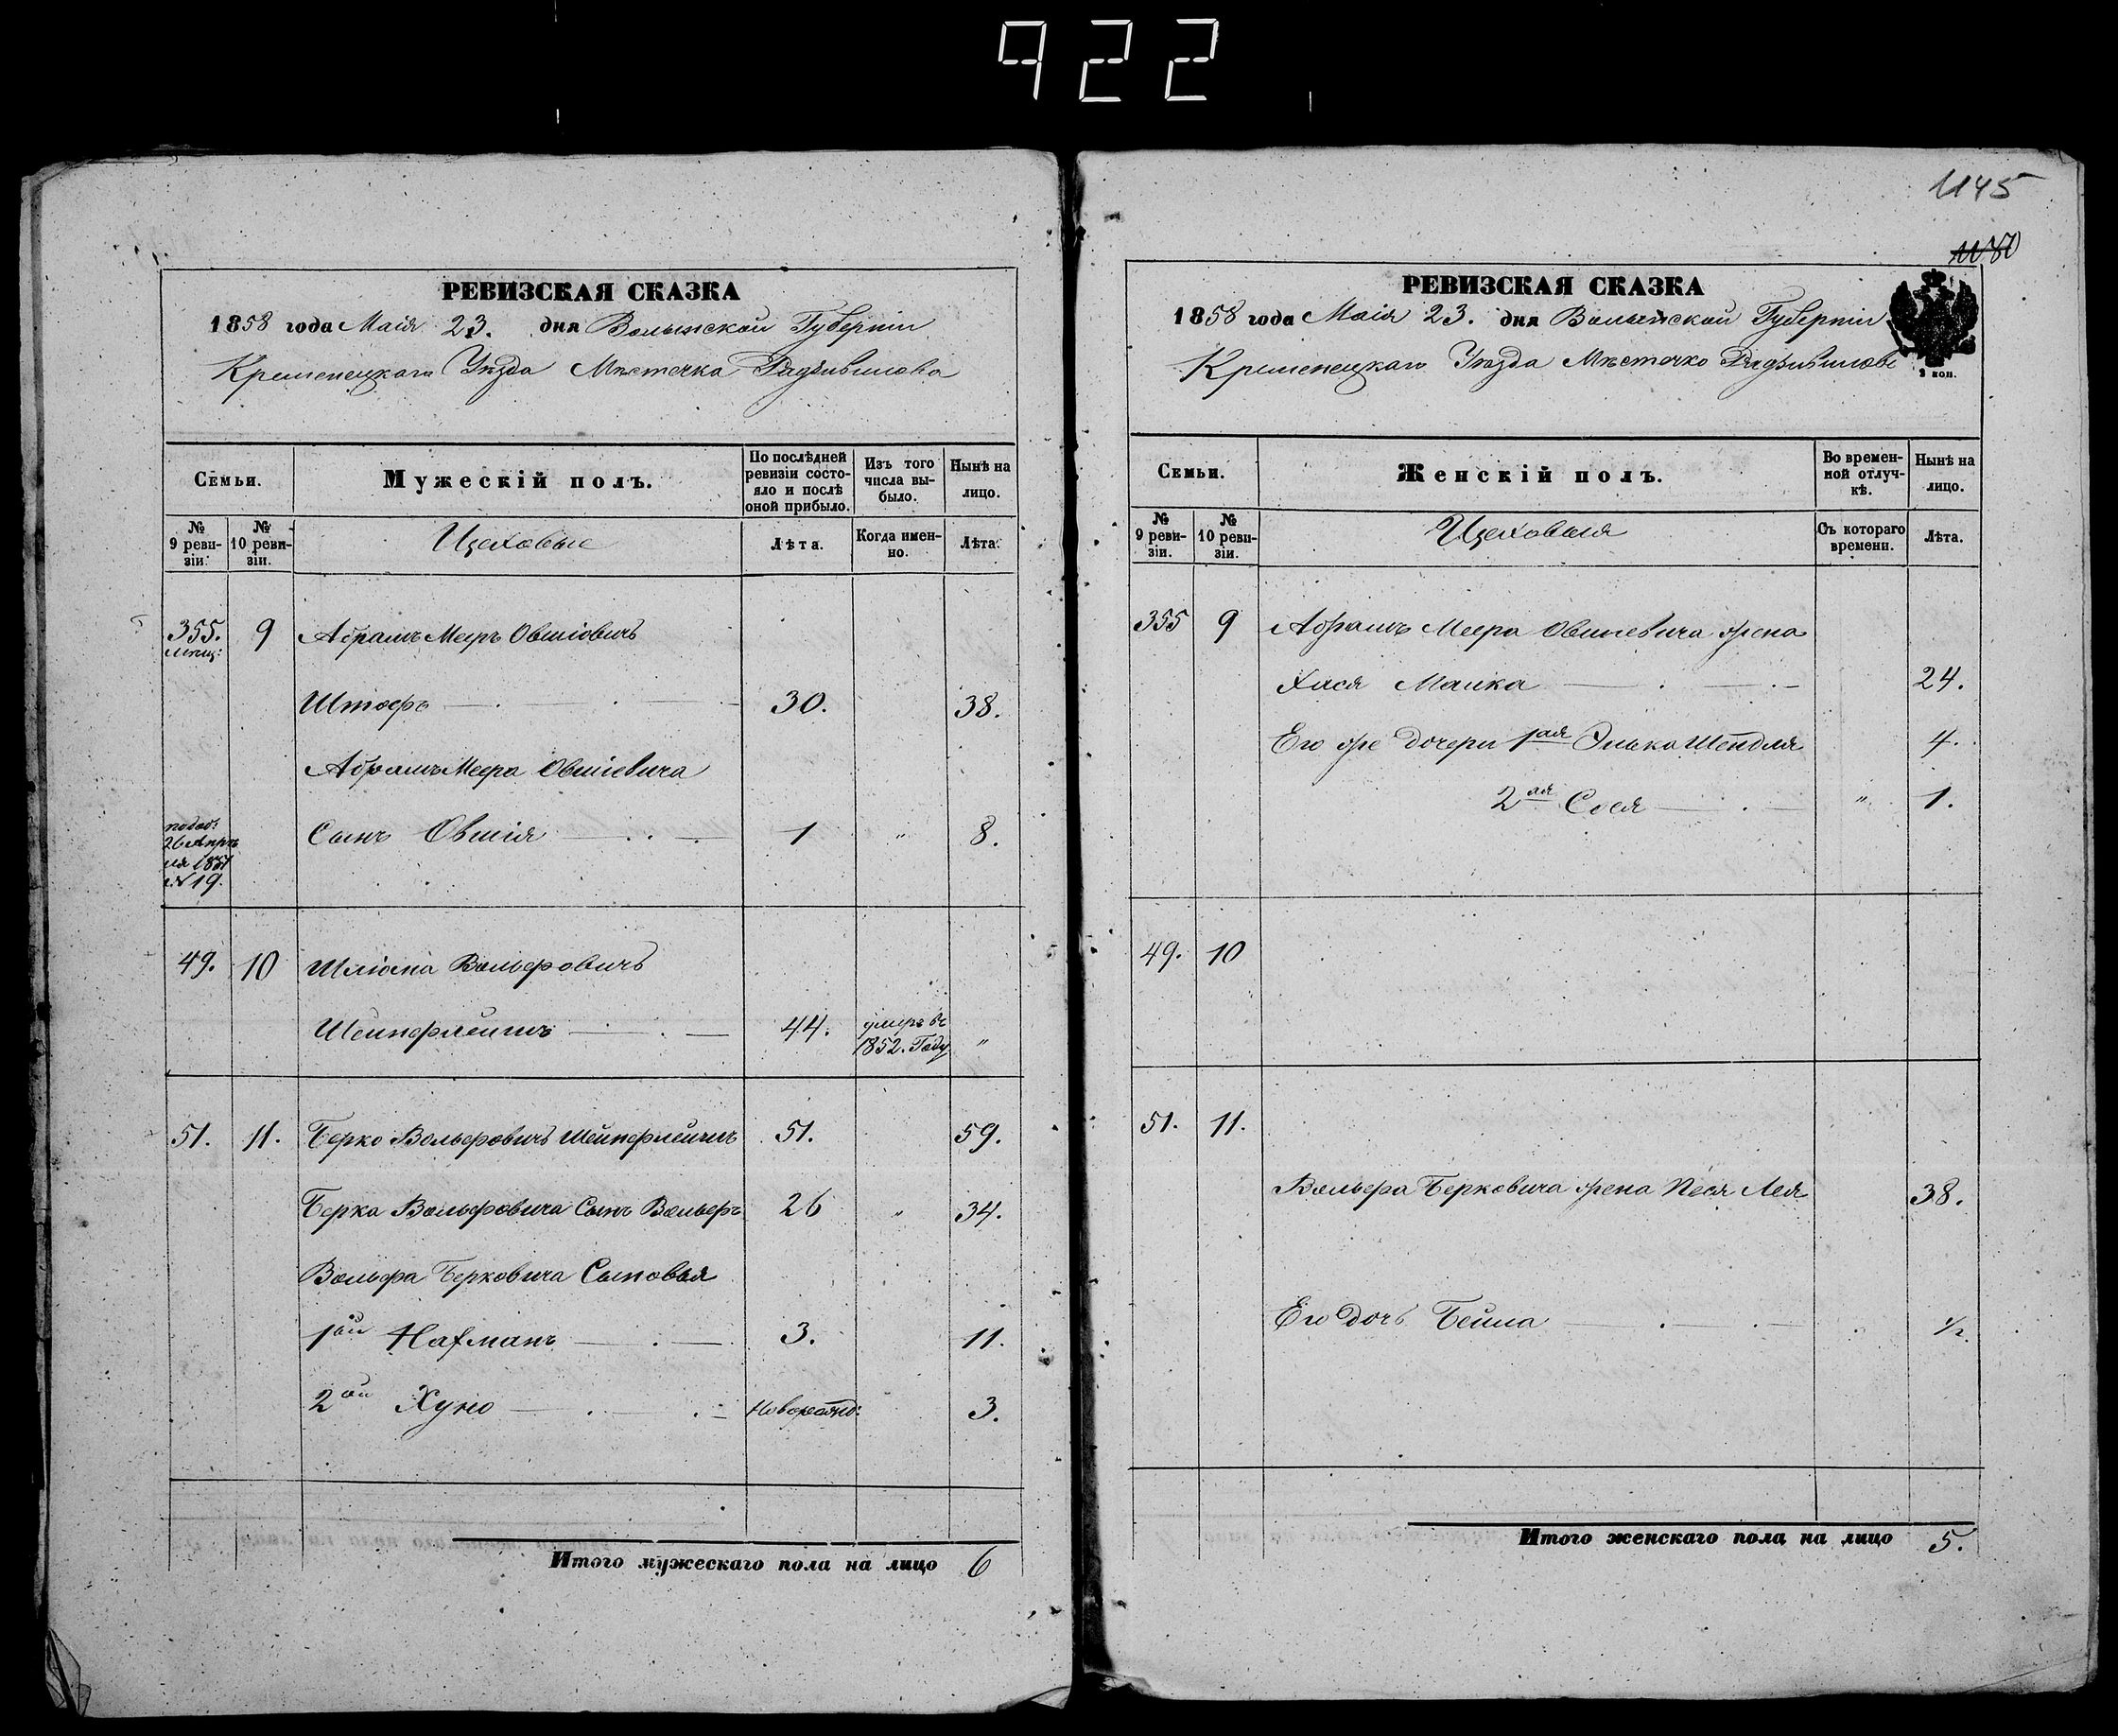 922
РЕВИЗСКАЯ СКАЗКА
1858 года Маія 23. дня Волынской Губерніи
Кременецкаго Уѣзда Мѣстечка Радзивилова
Семьи.
Мужескій полъ.
По послѣдней ревизіи состояло и послѣ оной прибыло.
Изъ того числа выбыло.
Нынѣ на лицо.
№ 9 ревизіи.
№ 10 ревизіи.
Цеховые
Лѣта.
Когда именно.
Лѣта.
355. 9 Абрамъ Мееръ Овшіовичъ
мѣщ:
Штофъ 30. 38.
Абрамъ Меера Овшіевича
Сынъ Овшія 1 " 8.
26 Апрѣ
ля 1851
№ 19.
49. 10 Шліома Вольфовичъ
Шейнфлейшъ 44. умеръ въ 1852. Году "
51. 11. Берко Вольфовичъ Шейнфлейшъ 51. 59.
Берка Вольфовича Сынъ Вольфъ 26 " 34.
Вольфа Берковича Сыновья
1ой Нахманъ 3. 11.
2ой Хуно Новорожд: 3.
Итого мужескаго пола на лицо 6
1145
РЕВИЗСКАЯ СКАЗКА
1858 года Маія 23. дня Волынской Губерніи
Кременецкаго Уѣзда Мѣстечко Радзивилове
3 коп.
Семьи.
Женскій полъ.
Во временной отлучкѣ.
Нынѣ на лицо.
№ 9 ревизіи.
№ 10 ревизіи.
Цеховыя
Съ котораго времени.
Лѣта.
355 9 Абрамъ Меера Овшіевича жена
Хася Малка 24.
Его же дочери 1ая Элька Шендля 4.
2ая Сося " 1.
49. 10
51. 11.
Вольфа Берковича жена Песя Лея 38.
Его дочь Бейла 1/2.
Итого женскаго пола на лицо 5.